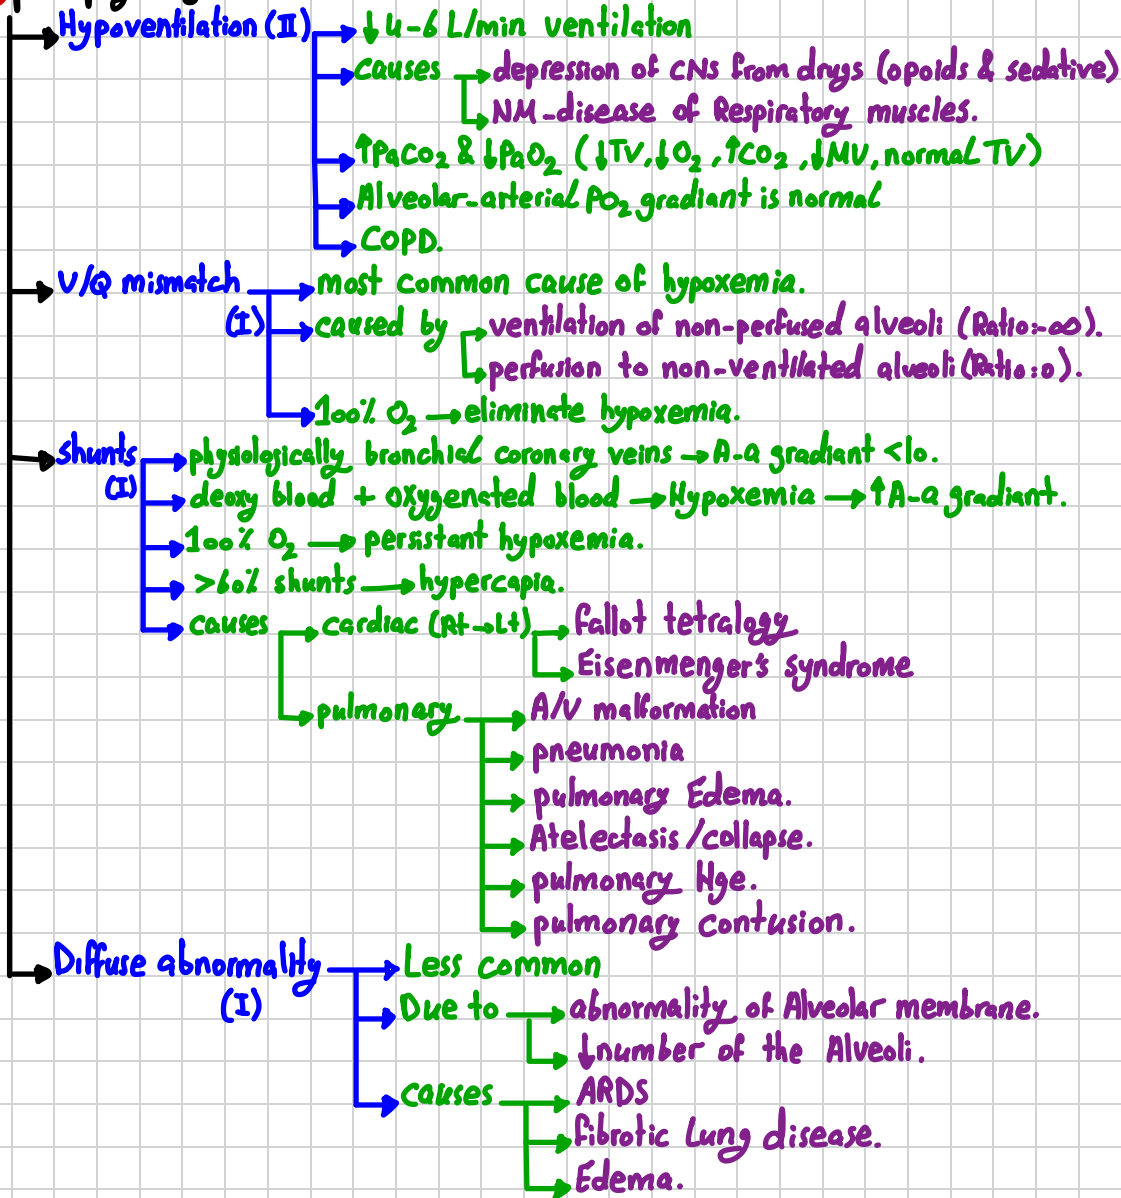 Hypoventilation (II)
↓ 4-6 L/min ventilation
causes
depression of CNS from drugs (opoids & sedative)
NM-disease of Respiratory muscles.
↑PaCO2 & ↓PaO2 (↓TV, ↓O2, ↑CO2, ↓MV, normal TV)
Alveolar-arterial PO2 gradiant is normal
COPD.
V/Q mismatch
(I)
most common cause of hypoxemia.
caused by
ventilation of non-perfused alveoli (Ratio:-∞).
perfusion to non-ventilated alveoli (Ratio:0).
100% O2 → eliminate hypoxemia.
shunts
(I)
physiologically bronchial coronary veins → A-a gradiant <10.
deoxy blood + oxygenated blood → Hypoxemia → ↑A-a gradiant.
100% O2 → persistant hypoxemia.
>60% shunts → hypercapia.
causes
cardiac (Rt→Lt)
fallot tetralogy
Eisenmenger's syndrome
pulmonary
A/V malformation
pneumonia
pulmonary Edema.
Atelectasis/collapse.
pulmonary Hge.
pulmonary contusion.
Diffuse abnormality
(I)
Less common
Due to
abnormality of Alveolar membrane.
↓number of the Alveoli.
causes
ARDS
fibrotic Lung disease.
Edema.